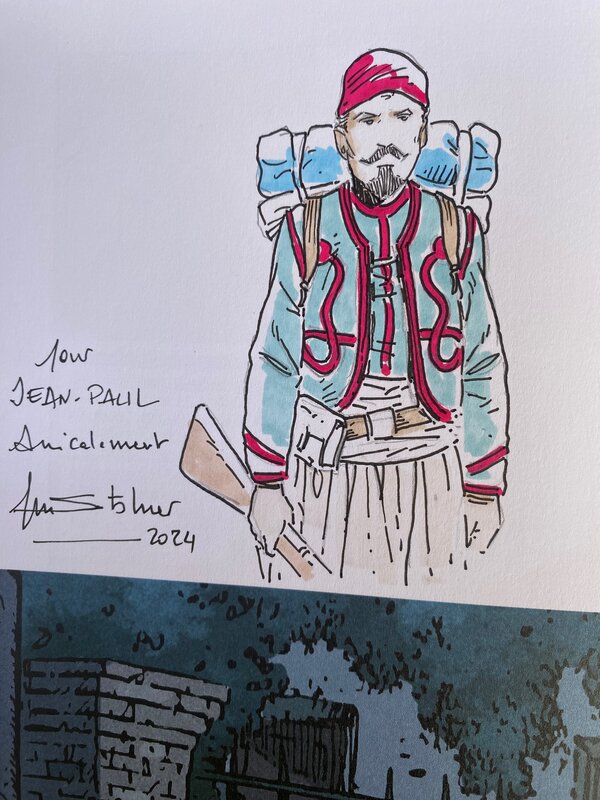 Pour
JEAN-PAUL
Amicalement
2024